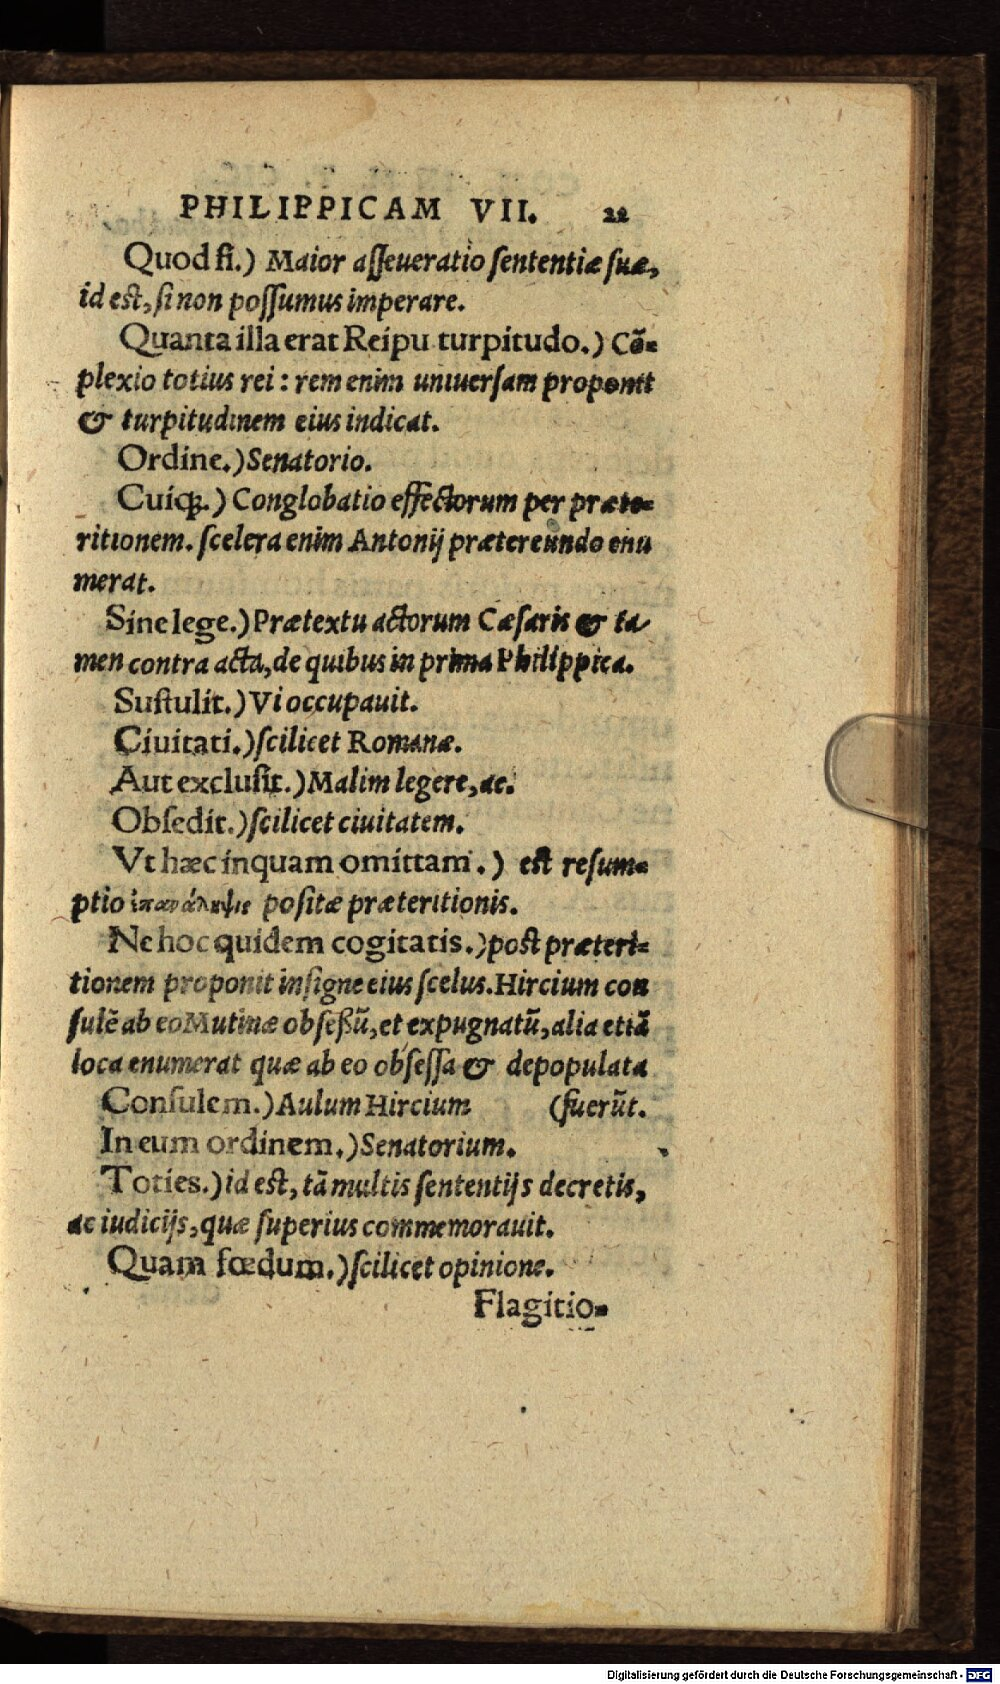 PHILIPPICAM VII. 22
Quod si.) Maior asseueratio sententiæ suæ,
id est, si non possumus imperare.
Quanta illa erat Reipu. turpitudo.) Cõ-
plexio totius rei: rem enim uniuersam proponit
& turpitudinem eius indicat.
Ordine.) Senatorio.
Cuiq;.) Conglobatio effectorum per præte-
ritionem. scelera enim Antonij prætereundo enu
merat.
Sine lege.) Prætextu actorum Cæsaris & ta
men contra acta, de quibus in prima Philippica.
Sustulit.) Vi occupauit.
Ciuitati.) scilicet Romanæ.
Aut exclusit.) Malim legere, ac.
Obsedit.) scilicet ciuitatem.
Vt hæc inquam omittam.) est resum-
ptio positæ præteritionis.
Ne hoc quidem cogitatis.) post præteri-
tionem proponit insigne eius scelus. Hircium con
sulẽ ab eo Mutinæ obseßũ, et expugnatũ, alia etiã
loca enumerat quæ ab eo obsessa & depopulata
Consulem.) Aulum Hircium (fuerũt.
In eum ordinem.) Senatorium.
Toties.) id est, tã multis sententijs decretis,
ac iudicijs, quæ superius commemorauit.
Quam fœdum.) scilicet opinione.
Flagitio-
Digitalisierung gefördert durch die Deutsche Forschungsgemeinschaft - DFG